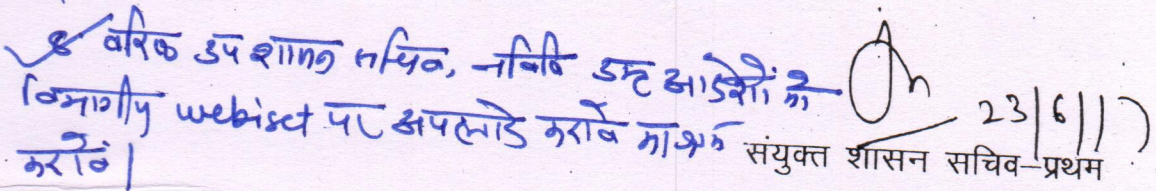 8 वरिष्ठ उप शासन सचिव, नविवि उक्त आदेशों को
विभागीय webiset पर अपलोड कराने का श्रम
करावें।
23/6/17
संयुक्त शासन सचिव-प्रथम